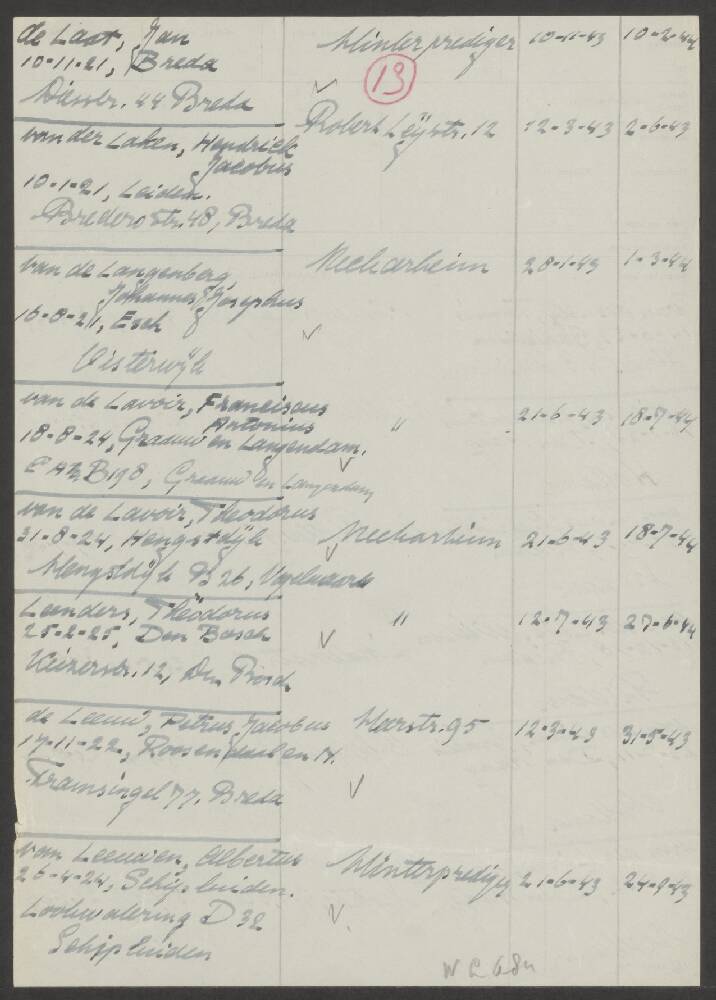 de Laat, Jan Winterprediger 10-11-43 10-2-44
10-11-21, Breda
13
44 Breda
van der Laken, Hendrick Robert Leystr. 12 12-3-43 2-6-43
Jacobus
10-1-21, Leiden.
Brederostr. 48, Breda
van de Langenberg Neckarheim 28-1-43 1-3-44
Johannes Josephus
16-8-21, Esch
Oisterwijk
van de Lavoir, Franciscus " 21-6-43 18-7-44
Antonius
18-8-24, Graauw en Langendam.
B198, Graauw en Langendam
van de Lavoir, Theodorus
31-8-24, Hengstdijk Neckarheim 21-6-43 18-7-44
Hengstdijk B 26, Vogelwaarde
Leenders, Theodorus " 12-7-43 27-6-44
25-2-25, Den Bosch
Keizerstr. 12, Den Bosch
de Leeuw, Petrus Jacobus Waarstr. 95 12-3-43 31-5-43
17-11-22, Roosendaal en N.
Tramsingel 77. Breda
van Leeuwen, Albertus Winterprediger 21-6-43 24-9-43
26-4-24, Schipluiden.
D 32
Schipluiden